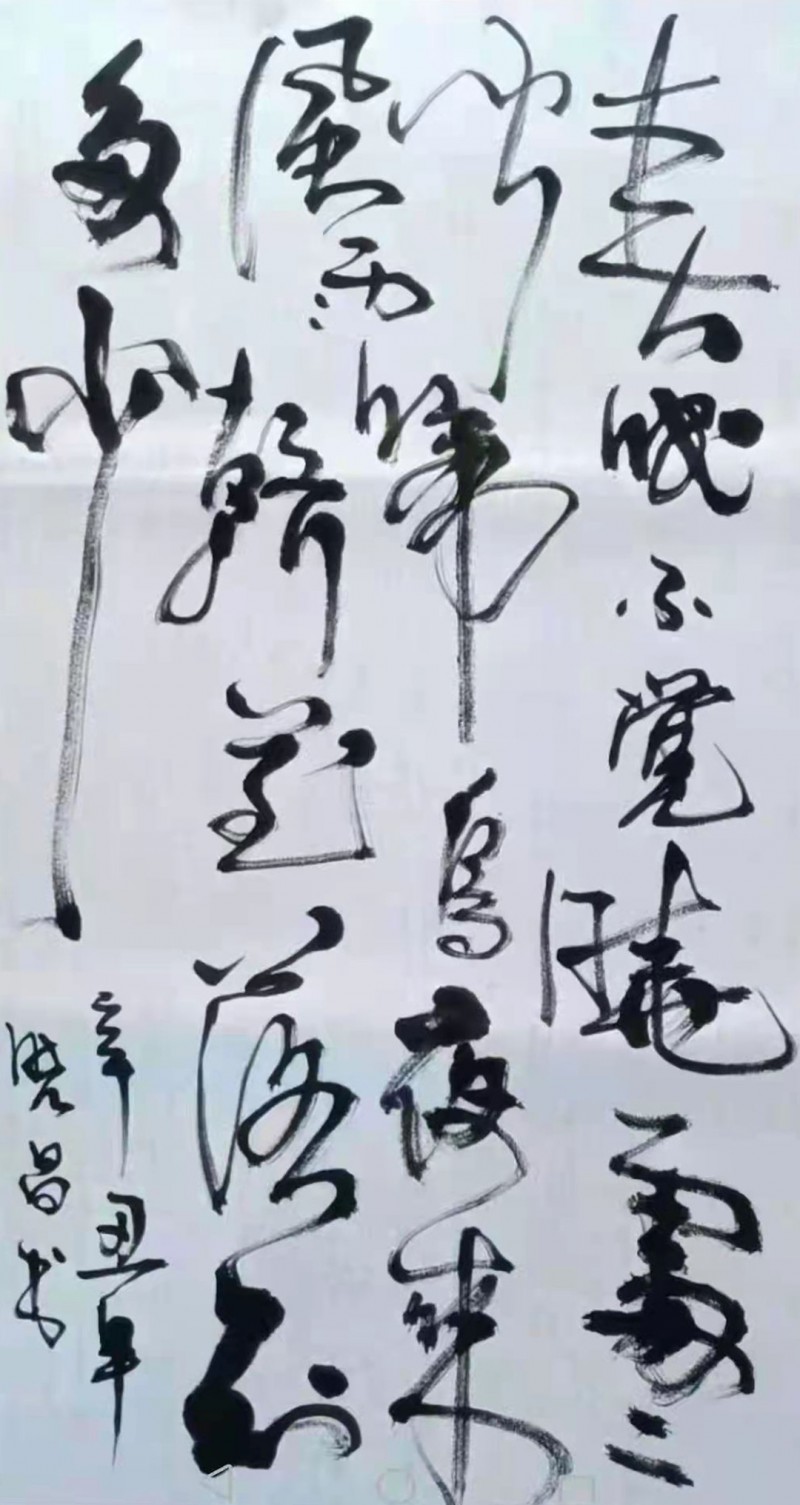 春眠不覺曉處々
聞啼鳥夜來
風雨聲花落知
多少
辛丑年
晓昌书